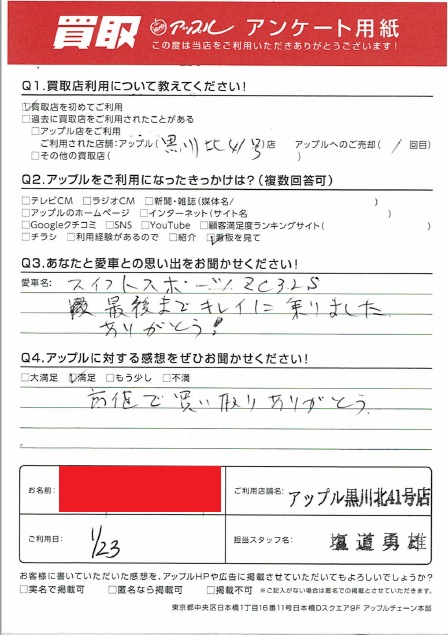 買取 アップル アンケート用紙
この度は当店をご利用いただきありがとうございます！
Q1.買取店利用について教えてください！
☑買取店を初めてご利用
□過去に買取店をご利用されたことがある
□アップル店をご利用
ご利用された店舗：アップル（黒川北41号）店 アップルへのご売却（1回目）
□その他の買取店（ ）
Q2.アップルをご利用になったきっかけは？（複数回答可）
□テレビCM □ラジオCM □新聞・雑誌（媒体名/ ）
□アップルのホームページ □インターネット（サイト名 ）
□Googleクチコミ □SNS □YouTube □顧客満足度ランキングサイト（ ）
□チラシ □利用経験があるので □紹介 ☑看板を見て
Q3.あなたと愛車との思い出をお聞かせください！
愛車名： スイフトスポーツ ZC32S
最後までキレイに乗りました
ありがとう！
Q4.アップルに対する感想をぜひお聞かせください！
□大満足 ☑満足 □もう少し □不満
高値で買い取りありがとう
お名前：
ご利用店舗名： アップル黒川北41号店
ご利用日： 1/23
担当スタッフ名： 塩道勇雄
お客様に書いていただいた感想を、アップルHPや広告に掲載させていただいてもよろしいでしょうか？
□実名で掲載可 □匿名なら掲載可 □掲載不可 ※ご記入がない場合は匿名での掲載とさせていただきます。
東京都中央区日本橋1丁目16番11号日本橋Dスクエア9F アップルチェーン本部